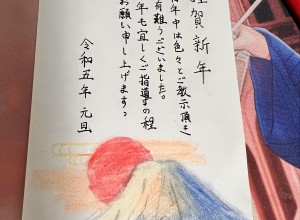 謹賀新年
昨年中は色々とご教示頂き
有難うございました。
本年も宜しくご指導の程
お願い申し上げます。
令和五年 元旦